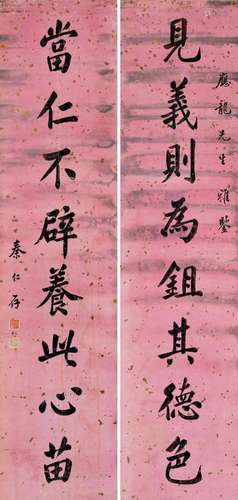 應龍先生雅鑒
見義則為鉏其德色
當仁不辟養此心苗
秦仁存